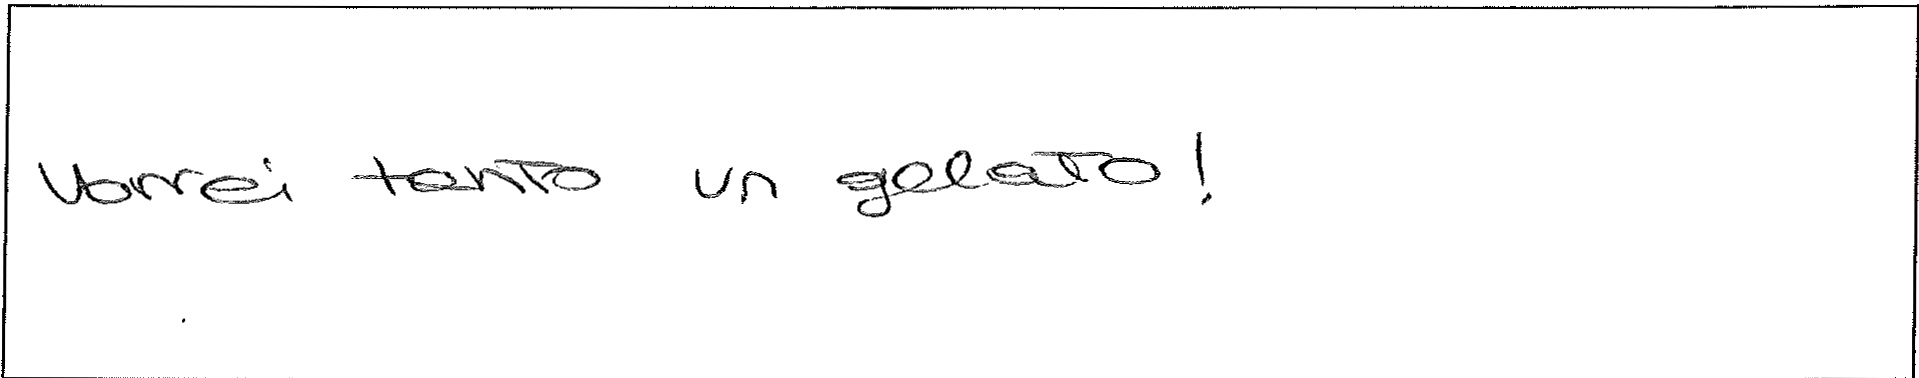 Vorrei tanto un gelato!